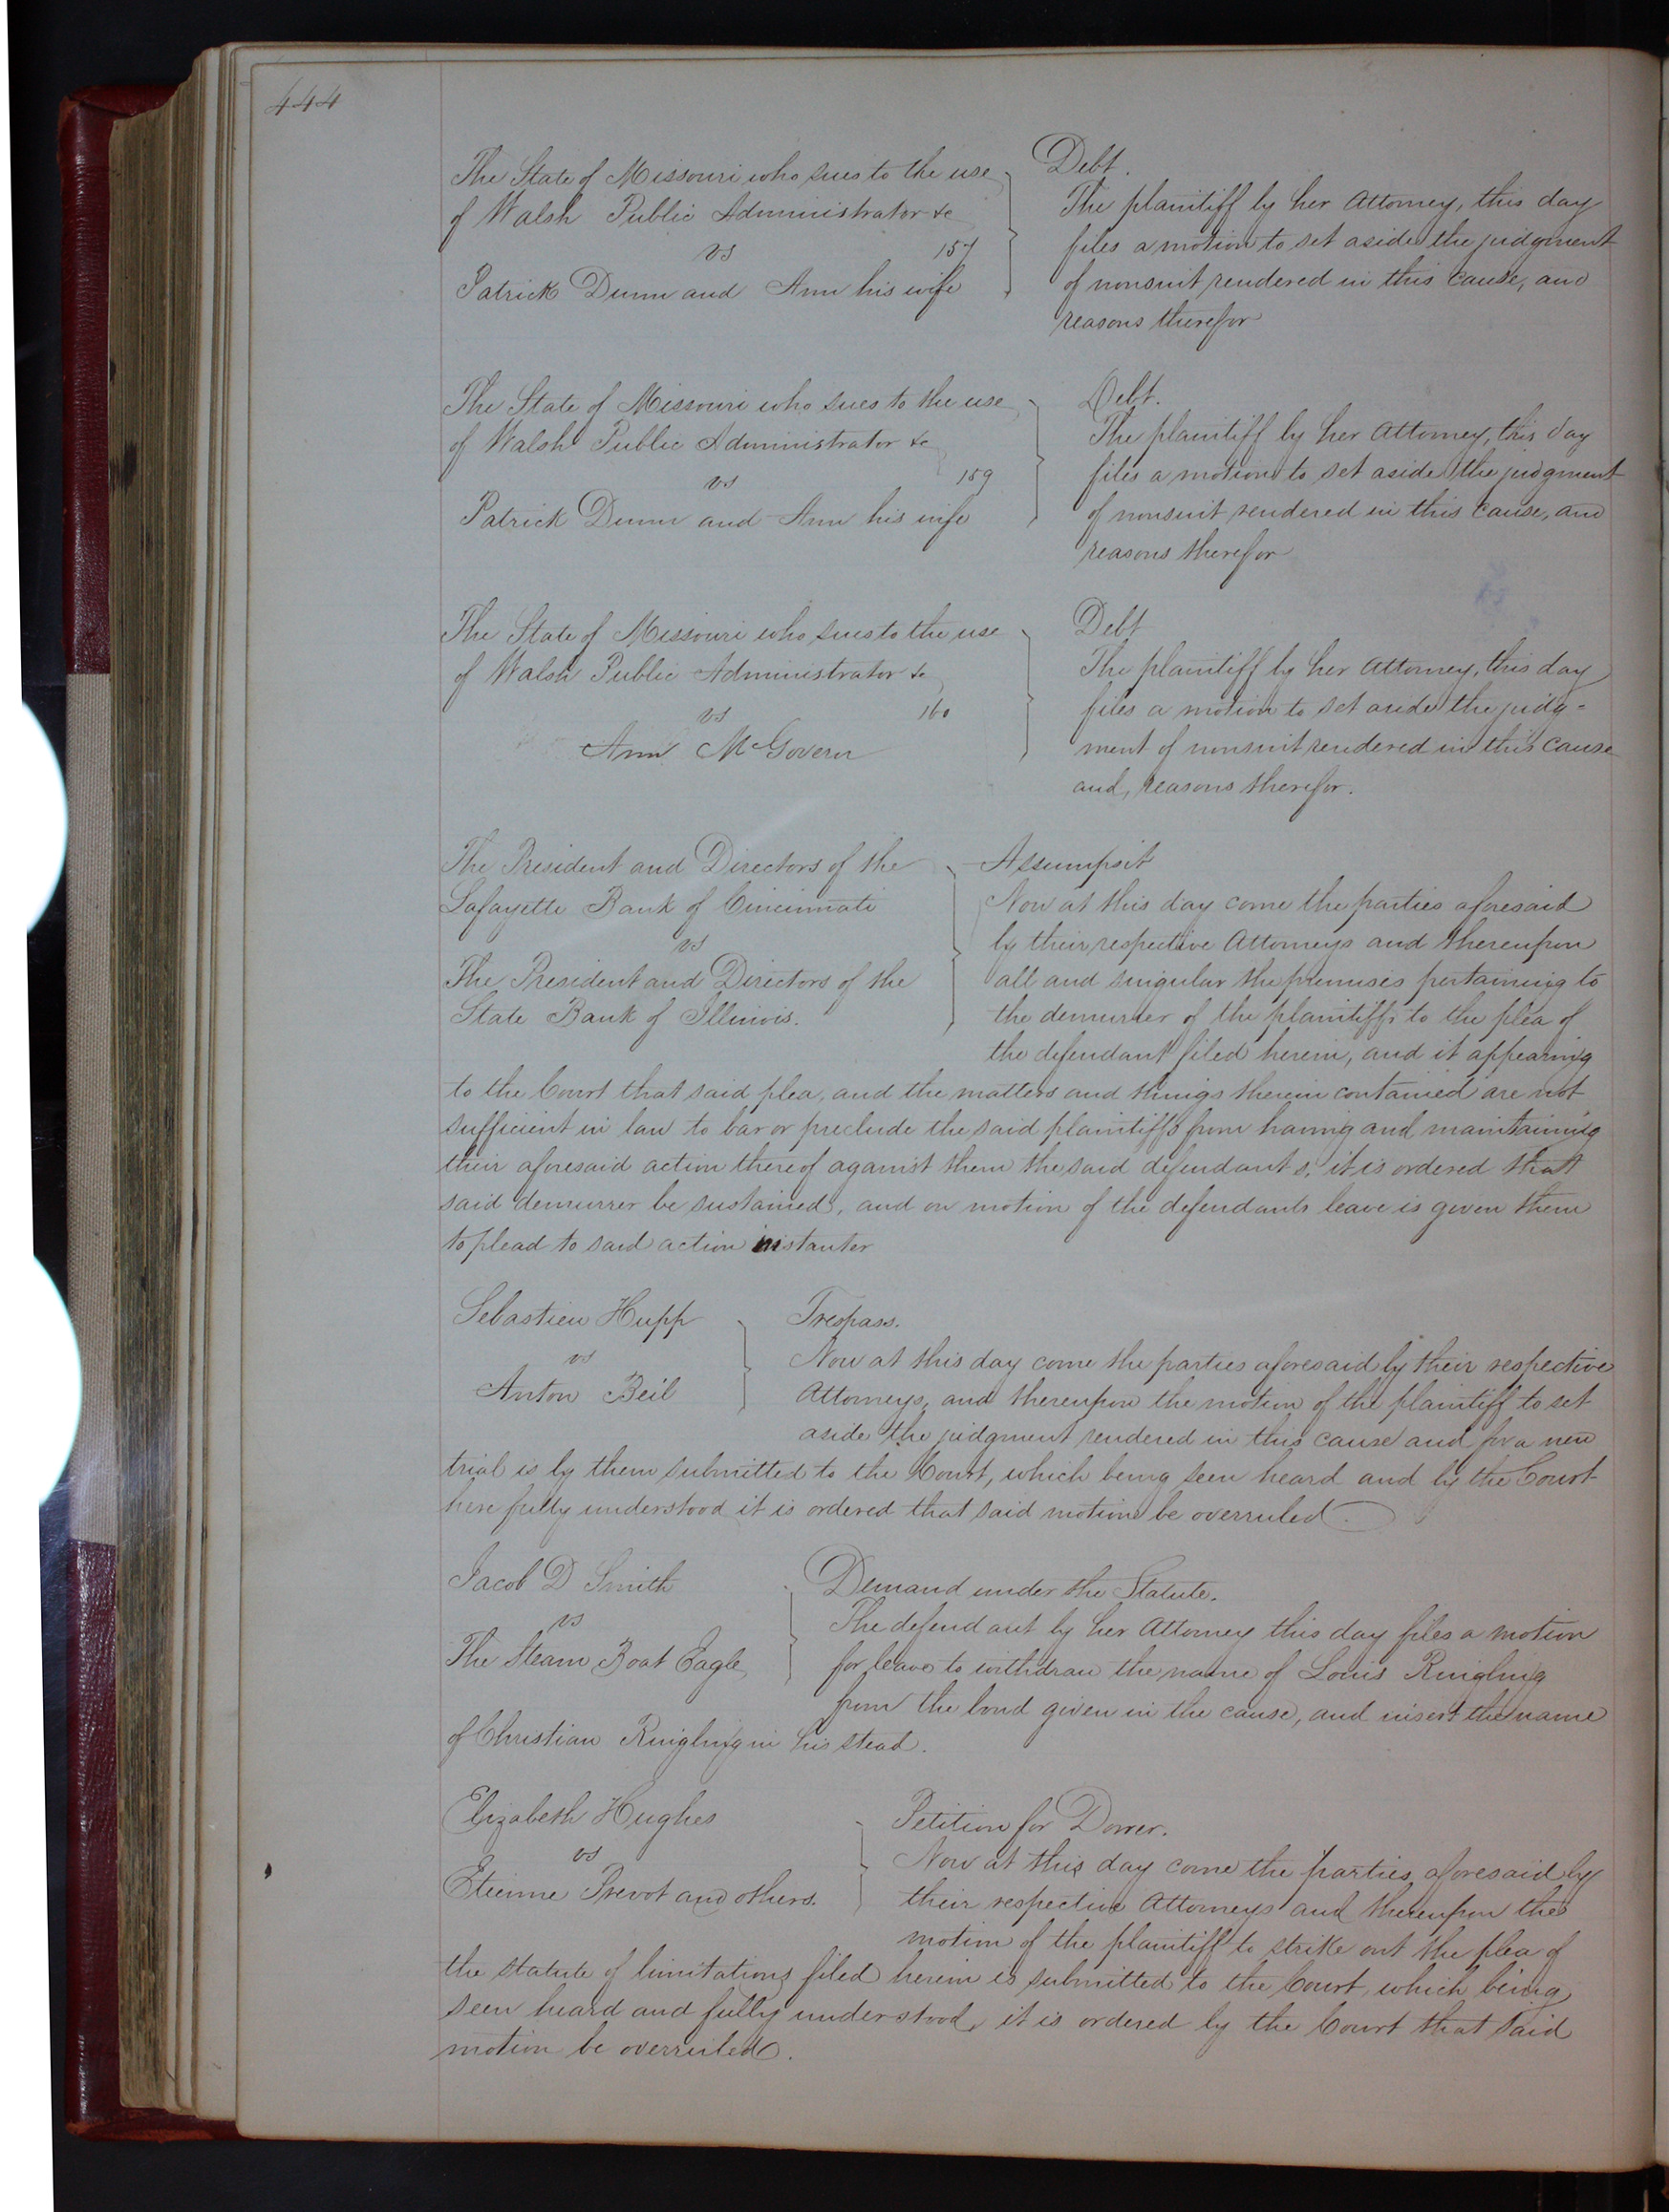 444
The State of Missouri who sues to the use
of Walsh Public Administrator &c
vs 157
Patrick Dunn and Ann his wife
Debt.
The plaintiff by her Attorney, this day
files a motion to set aside the judgment
of nonsuit rendered in this cause, and
reasons therefor
The State of Missouri who sues to the use
of Walsh Public Administrator &c
vs 159
Patrick Dunn and Ann his wife
Debt.
The plaintiff by her Attorney, this day
files a motion to set aside the judgment
of nonsuit rendered in this cause, and
reasons therefor
The State of Missouri who sues to the use
of Walsh Public Administrator &c
vs 160
Ann McGovern
Debt
The plaintiff by her Attorney, this day
files a motion to set aside the judg=
ment of nonsuit rendered in this cause
and, reasons therefor.
The President and Directors of the
Lafayette Bank of Cincinnati
vs
The President and Directors of the
State Bank of Illinois.
Assumpsit
Now at this day come the parties aforesaid
by their respective Attorneys and thereupon
all and singular the premises pertaining to
the demurrer of the plaintiffs to the plea of
the defendant filed herein, and it appearing
to the Court that said plea, and the matters and things therein contained are not
sufficient in law to bar or preclude the said plaintiffs from having and maintaining
their aforesaid action thereof against them the said defendants, it is ordered that
said demurrer be sustained, and on motion of the defendants leave is given them
to plead to said action instanter
Sebastien Hupp
vs
Anton Beil
Trespass.
Now at this day come the parties aforesaid by their respective
Attorneys, and thereupon the motion of the plaintiff to set
aside the judgment rendered in this cause and for a new
trial is by them submitted to the Court, which being seen heard and by the Court
here fully understood it is ordered that said motion be overruled.
Jacob D Smith
vs
The Steam Boat Eagle
Demand under the Statute.
The defendant by her Attorney this day files a motion
for leave to withdraw the name of Louis Ringling
from the bond given in the cause, and insert the name
of Christian Ringling in his stead.
Elizabeth Hughes
vs
Etienne Prevot and others.
Petition for Dower.
Now at this day come the parties, aforesaid by
their respective Attorneys and thereupon the
motion of the plaintiff to strike out the plea of
the statute of limitations filed herein is submitted to the Court, which being
seen heard and fully understood, it is ordered by the Court that said
motion be overruled.